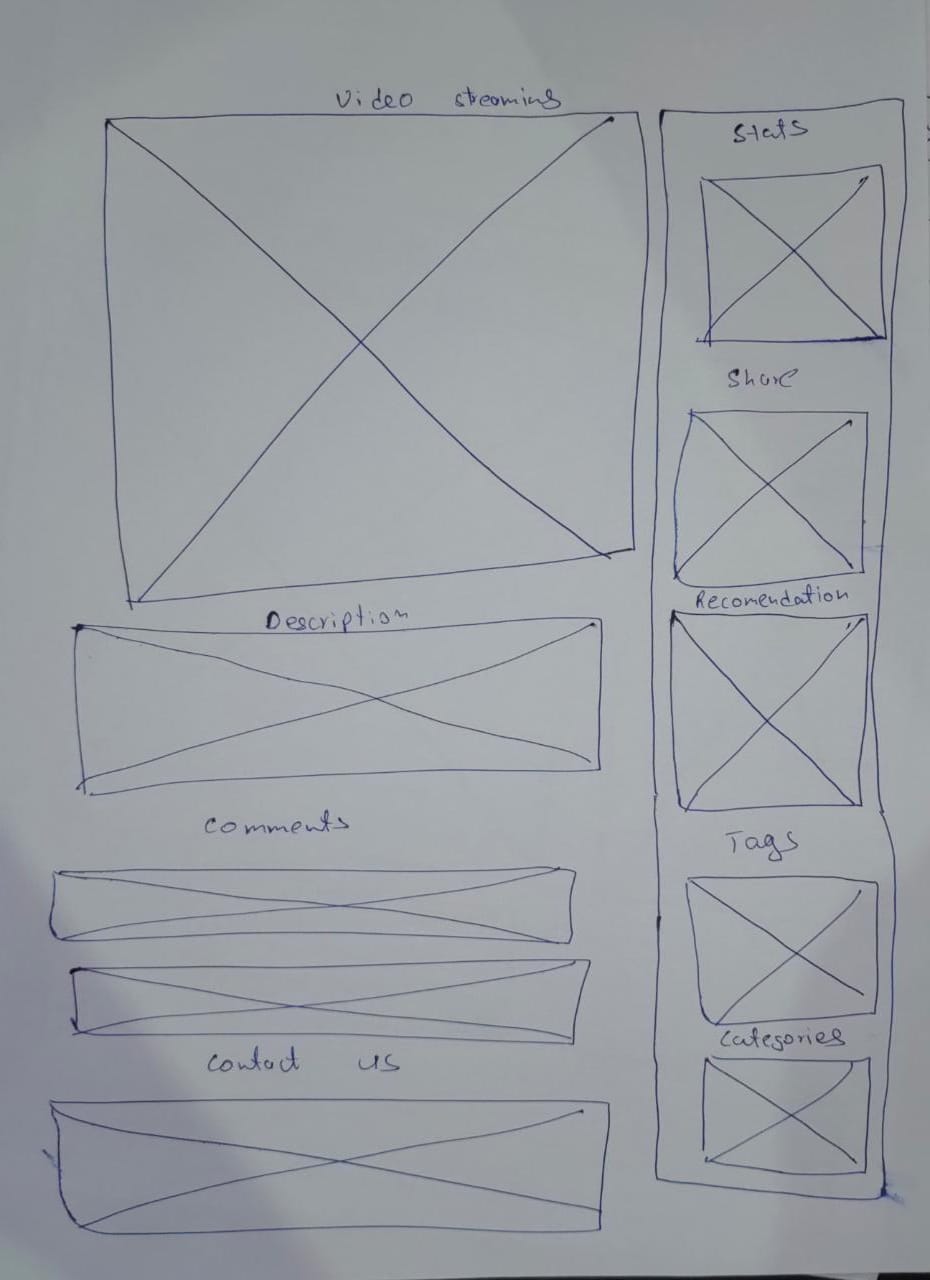 Video streaming
Description
Comments
Contact us
Stats
Share
Recomendation
Tags
Categories